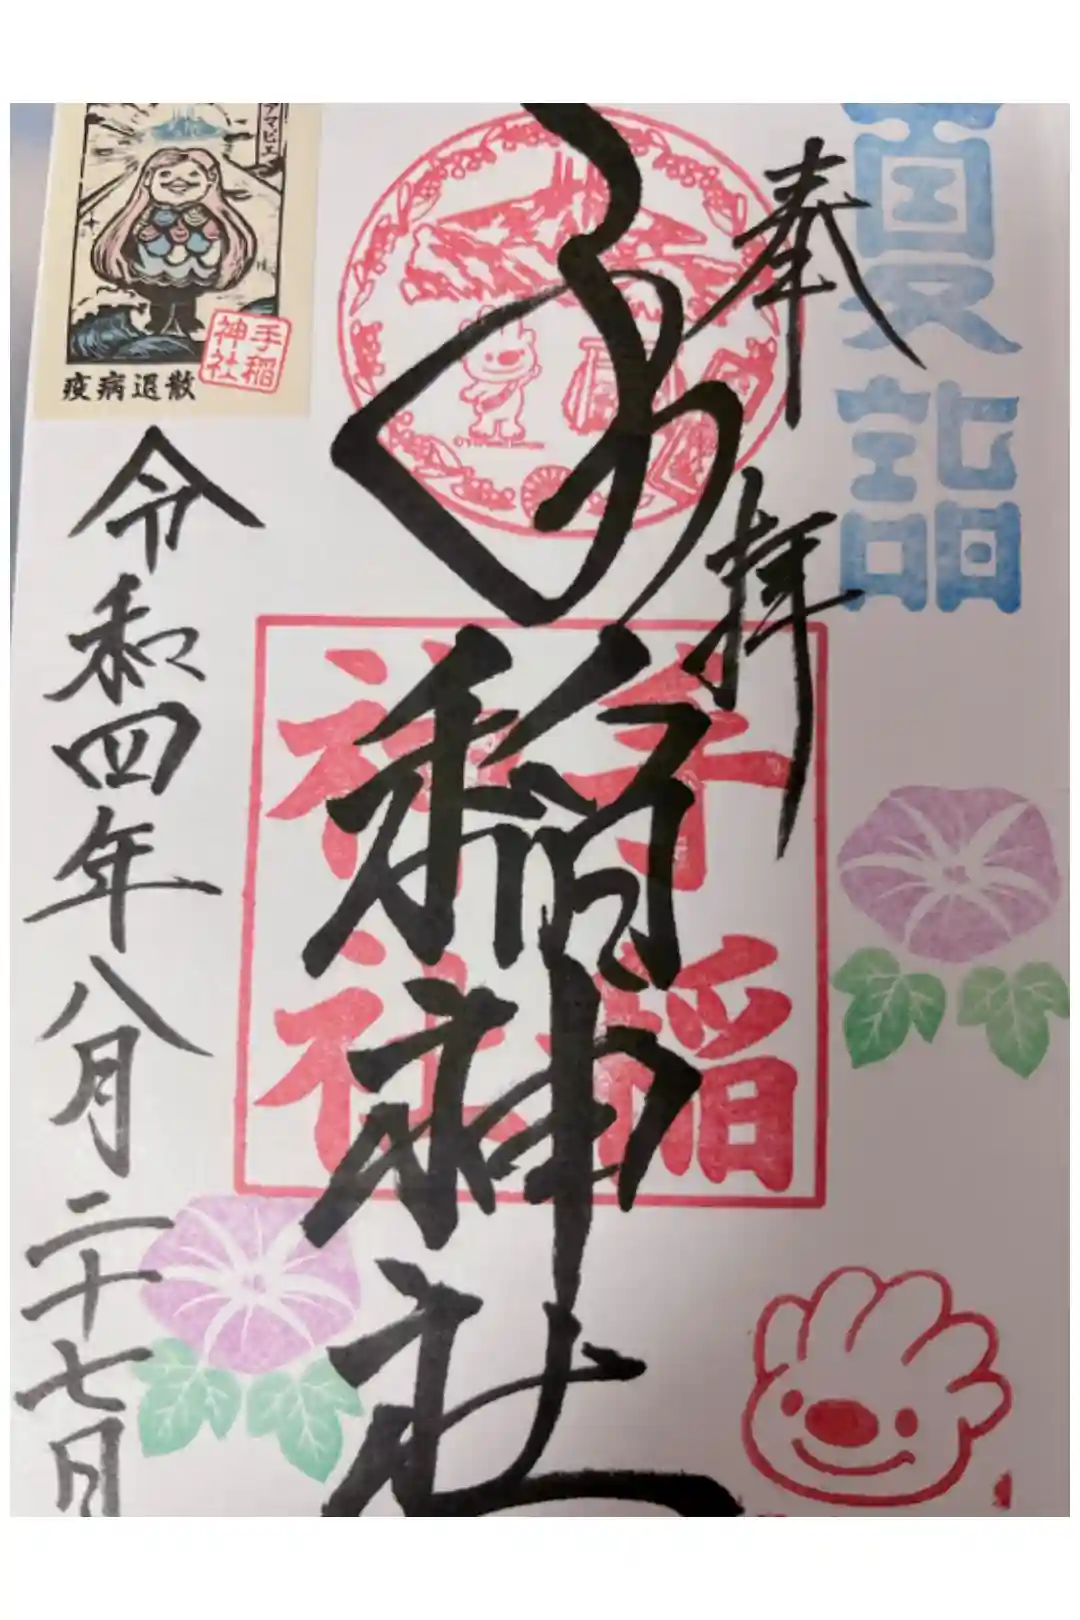 夏詣
奉拝
手稲神社
手稲神社
令和四年八月二十七日
アマビエ
手稲神社
疫病退散